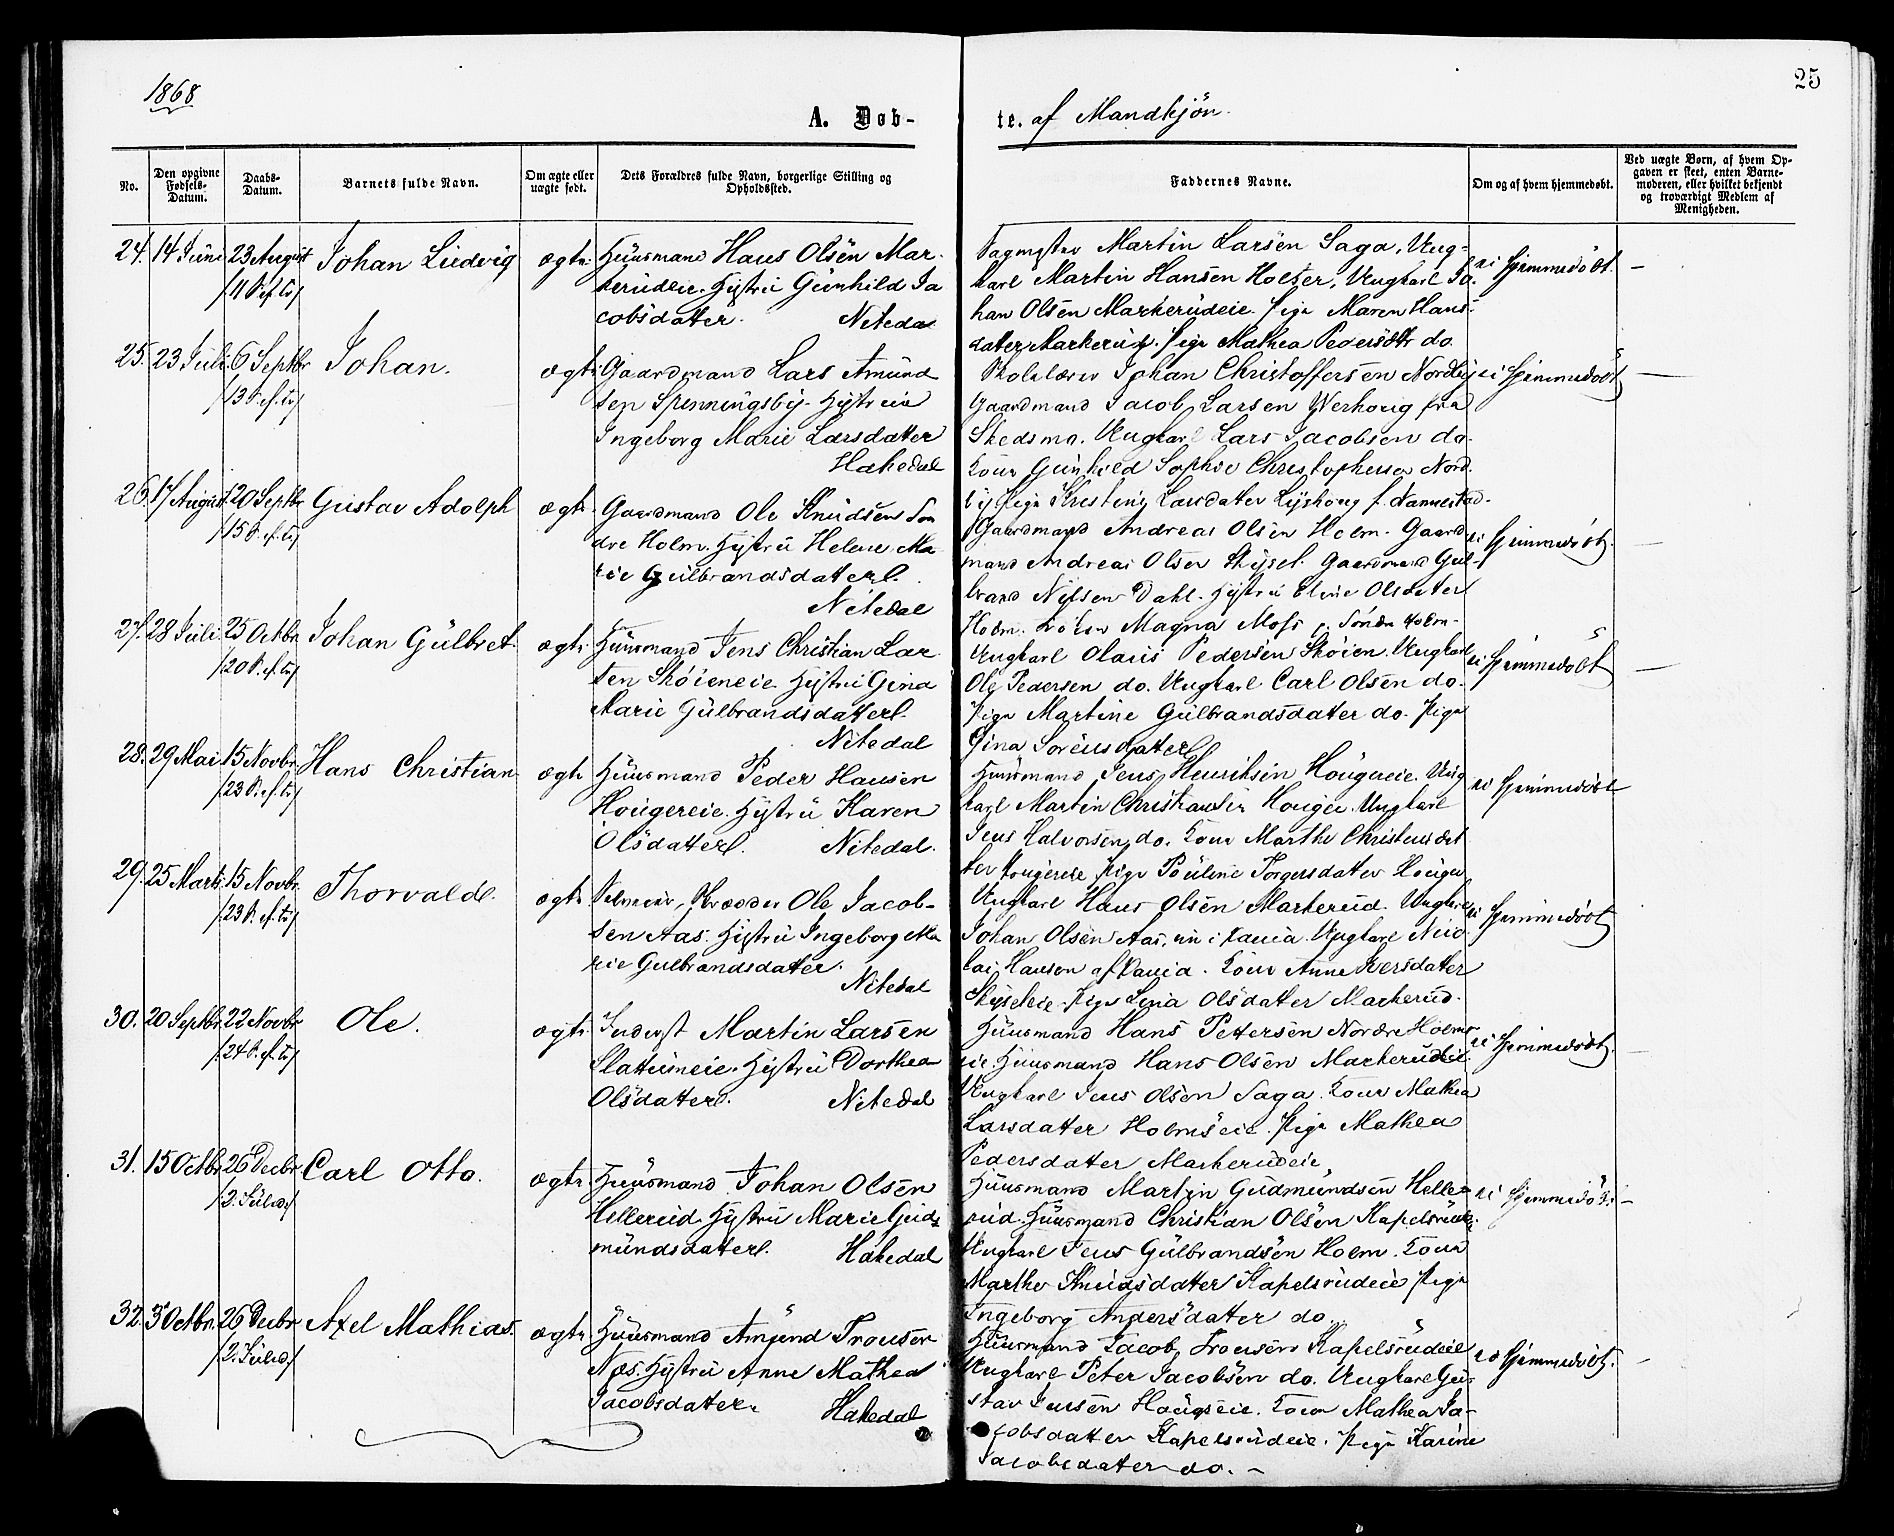 1868
25
A. Døb-
te. af Mandkjön.
No.
Den opgivne Fødsels-Datum.
Daabs-Datum.
Barnets fulde Navn.
Om ægte eller uægte født.
Dets Forældres fulde Navn, borgerlige Stilling og Opholdssted.
Faddernes Navne.
Om og af hvem hjemmedøbt.
Ved uægte Børn, af hvem Op-
gaven er skeet, enten Barne-
moderen, eller hvilket bekjendt
og troværdigt Medlem af
Menigheden.
24. 14 Juni 23 August Johan Ludvig ægte Huusmand Hans Olsen Mar-
/11 S. ef. tr/ kerudeie. Hustru Gunhild Ja
cobsdater. Nitedal
Martin Larsen Saga, Ung-
karl Martin Hansen Holter, Ungkarl Jo-
han Olsen Markerudeie. Pige Maren Hans-
dater Markerud. Pige Mathea Pedersdtr do.
ei hjemmedöbt. –
25. 23 Juli 6 Septbr Johan. ægte Gaardmand Lars Amund
/13 S. ef. tr/ sen Spenningsby. Hustrue
Ingeborg Marie Larsdatter
Hakedal
Skolelærer Johan Christoffersen Nordby
Gaardmand Jacob Larsen Hverhoug fra
Skedsmo. Ungkarl Lars Jacobsen do.
Kone Gunhild Sophie Christophersen Nord
by Pige Kristine Larsdater Lyshoug f. Nannestad.
ei hjemmedöbt –
26. 17 August 20 Septbr Gustav Adolph ægte Gaardmand Ole Knudsen Søn
/15 S. ef. tr/ dre Holm. Hustru Helene Ma-
rie Gulbrandsdater.
Nitedal
Gaardmand Andreas Olsen Holm. Gaard
mand Andreas Olsen Skyset. Gaardmand Gul-
brand Nilsen Dahl. Hustru Eline Olsdater
Holm. Magna Moss Söndre Holm.
ei hjemmedöbt. –
27. 28 Juli 25 Octbr Johan Gulbret. ægte Huusmand Jens Christian Lar
/20 S. ef. tr/ sen Skøieneie Hustru Gina
Marie Gulbrandsdater.
Nitedal
Ungkarl Olaus Pedersen Skøien. Ungkarl
Ole Pedersen do. Ungkarl Carl Olsen do.
Pige Martine Gulbrandsdater do. Pige
Gina Sørensdater
ei hjemmedöbt –
28. 29 Mai 15 Novbr. Hans Christian ægte Huusmand Peder Hansen
/23 S. ef. tr/ Hougereie. Hustru Karen
Olsdatter. Nitedal.
Huusmand Jens Henriksen Hougereie. Ung
karl Martin Christiansen Houger. Ungkarl
Jens Halvorsen do. Kone Marthe Christensdat
ter Hougereie Pige Pauline Torgersdater Houger
ei hjemmedöbt
29. 25 Marts 15 Novbr. Thorvald. ægte Ole Jacob-
/23 S. ef. tr/ sen Aas. Hustru Ingeborg Ma
rie Gulbrandsdater.
Nitedal
Ungkarl Hans Olsen Markerud. Ungkarl
Johan Olsen Aas. Ungkarl Nico
lai Hansen af Kone Anne Iversdater
Skyseteie. Pige Lina Olsdater Markerud.
ei hjemmedöbt
30. 20 Septbr. 22 Novbr Ole. ægte Inderst Martin Larsen
/24 S. ef. tr/ Slattumeie. Hustru Dorthea
Olsdatter. Nitedal
Huusmand Hans Pettersen Nordre Holms
eie. Huusmand Hans Olsen Markerudeie.
Ungkarl Jens Olsen Saga. Kone Mathea
Larsdater Holmseie. Pige Mathea
Pedersdater Markerudeie
ei hjemmedöbt. –
31. 15 Octbr. 26 Decbr Carl Otto. ægte Huusmand Johan Olsen
/2. Juled./ Hellerud. Hustru Marie Gud-
mundsdatter. Hakedal
Huusmand Martin Gudmundsen Helle-
rud. Huusmand Christian Olsen Kapelsrudeie.
Ungkarl Jens Gulbrandsen Holm. Kone
Marthe Knudsdater Kapelsrudeie Pige
Ingeborg Andersdater do.
ei hjemmedöbt –
32. 3 Octbr. 26 Decbr Axel Mathias. ægte Huusmand Amund Tronsen
/2. Juled./ Næs. Hustru Anne Mathea
Jacobsdatter. Hakedal
Huusmand Jacob Tronsen Kapelsrudeie
Ungkarl Peter Jacobsen do. Ungkarl Gu-
stav Jensen Hougseie. Kone Mathea Ja-
cobsdatter Kapelsrudeie. Pige Karine
Jacobsdater do. –
ei hjemmedöbt. –